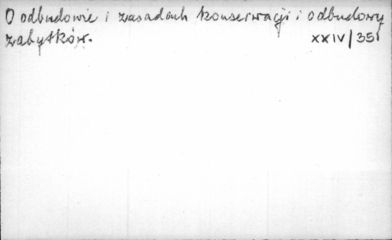 O odbudowie i zasadach konserwacji i odbudowy
zabytków. XXIV/351